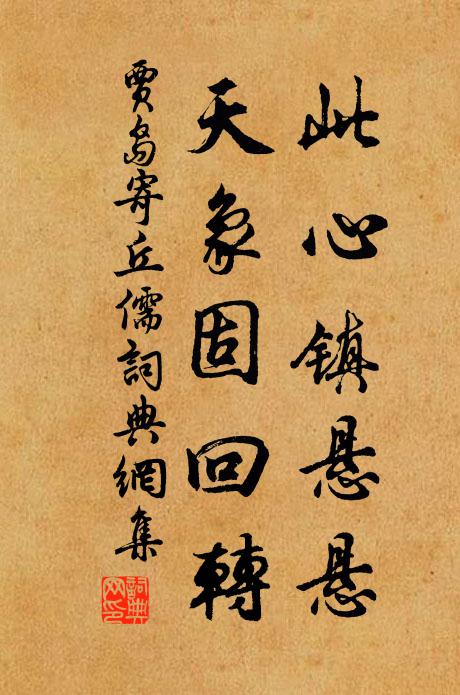 此心镇悬悬
天象固回轉
賈島寄丘儒詞典網集
詞典
网印